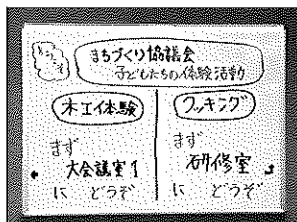 ようこそ
まちづくり協議会
子どもたちの体験活動
木工体験
まず
大会議室1
に どうぞ
クッキング
まず
研修室
に どうぞ